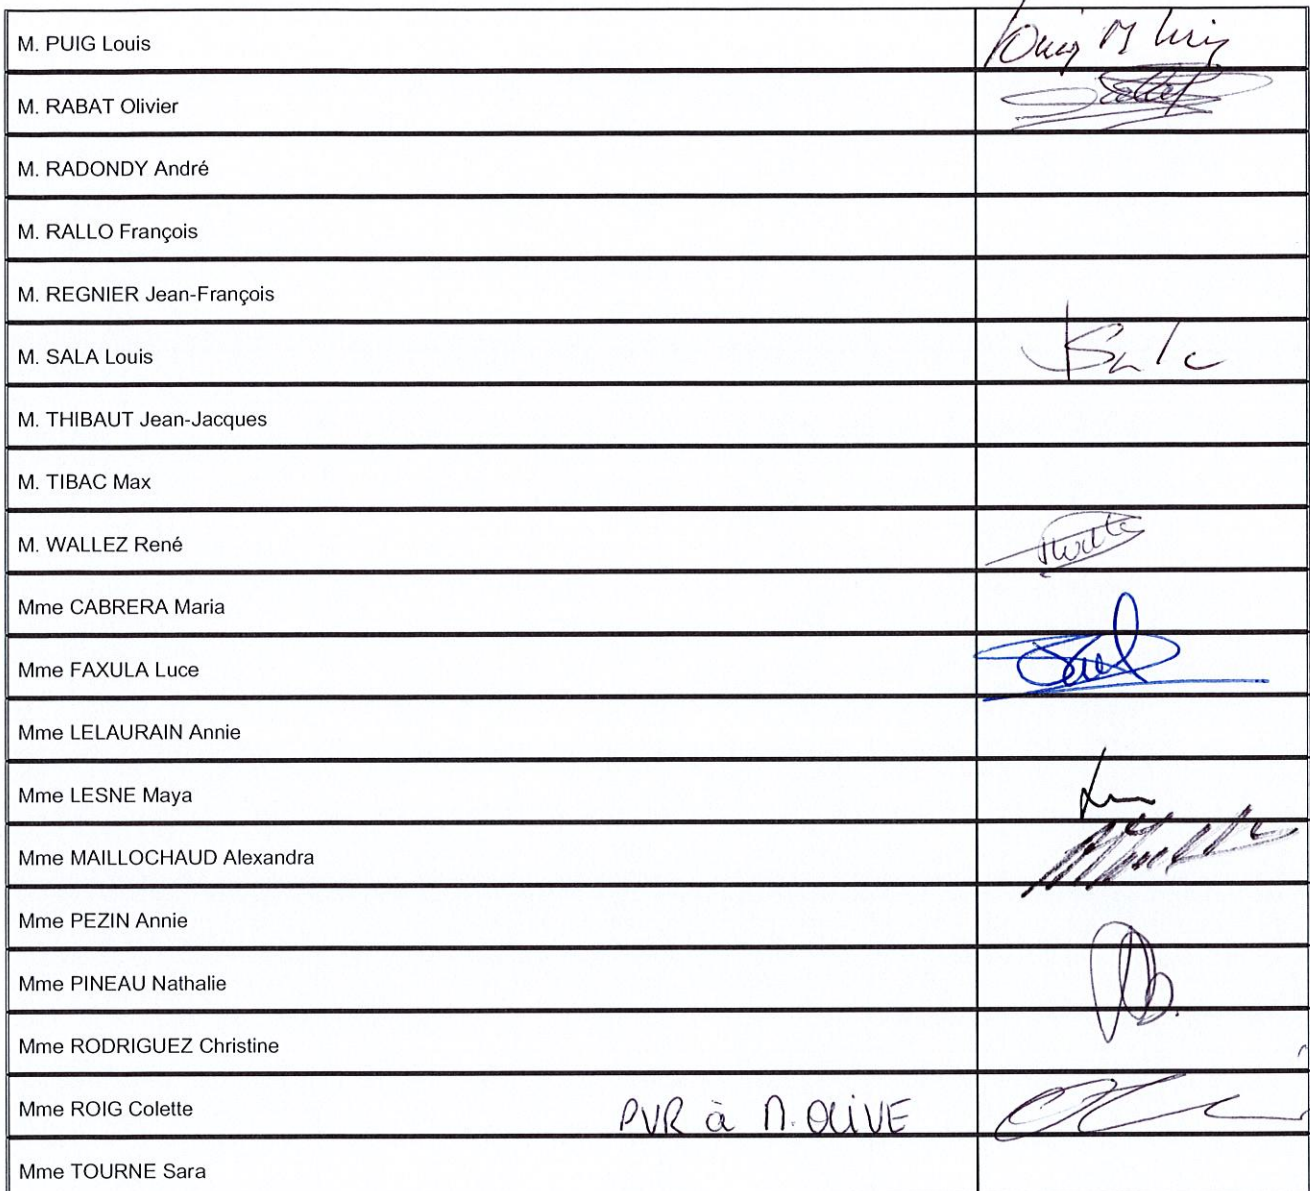 M. PUIG Louis
M. RABAT Olivier
M. RADONDY André
M. RALLO François
M. REGNIER Jean-François
M. SALA Louis
M. THIBAUT Jean-Jacques
M. TIBAC Max
M. WALLEZ René
Mme CABRERA Maria
Mme FAXULA Luce
Mme LELAURAIN Annie
Mme LESNE Maya
Mme MAILLOCHAUD Alexandra
Mme PEZIN Annie
Mme PINEAU Nathalie
Mme RODRIGUEZ Christine
Mme ROIG Colette PVR à M. OLIVE
Mme TOURNE Sara